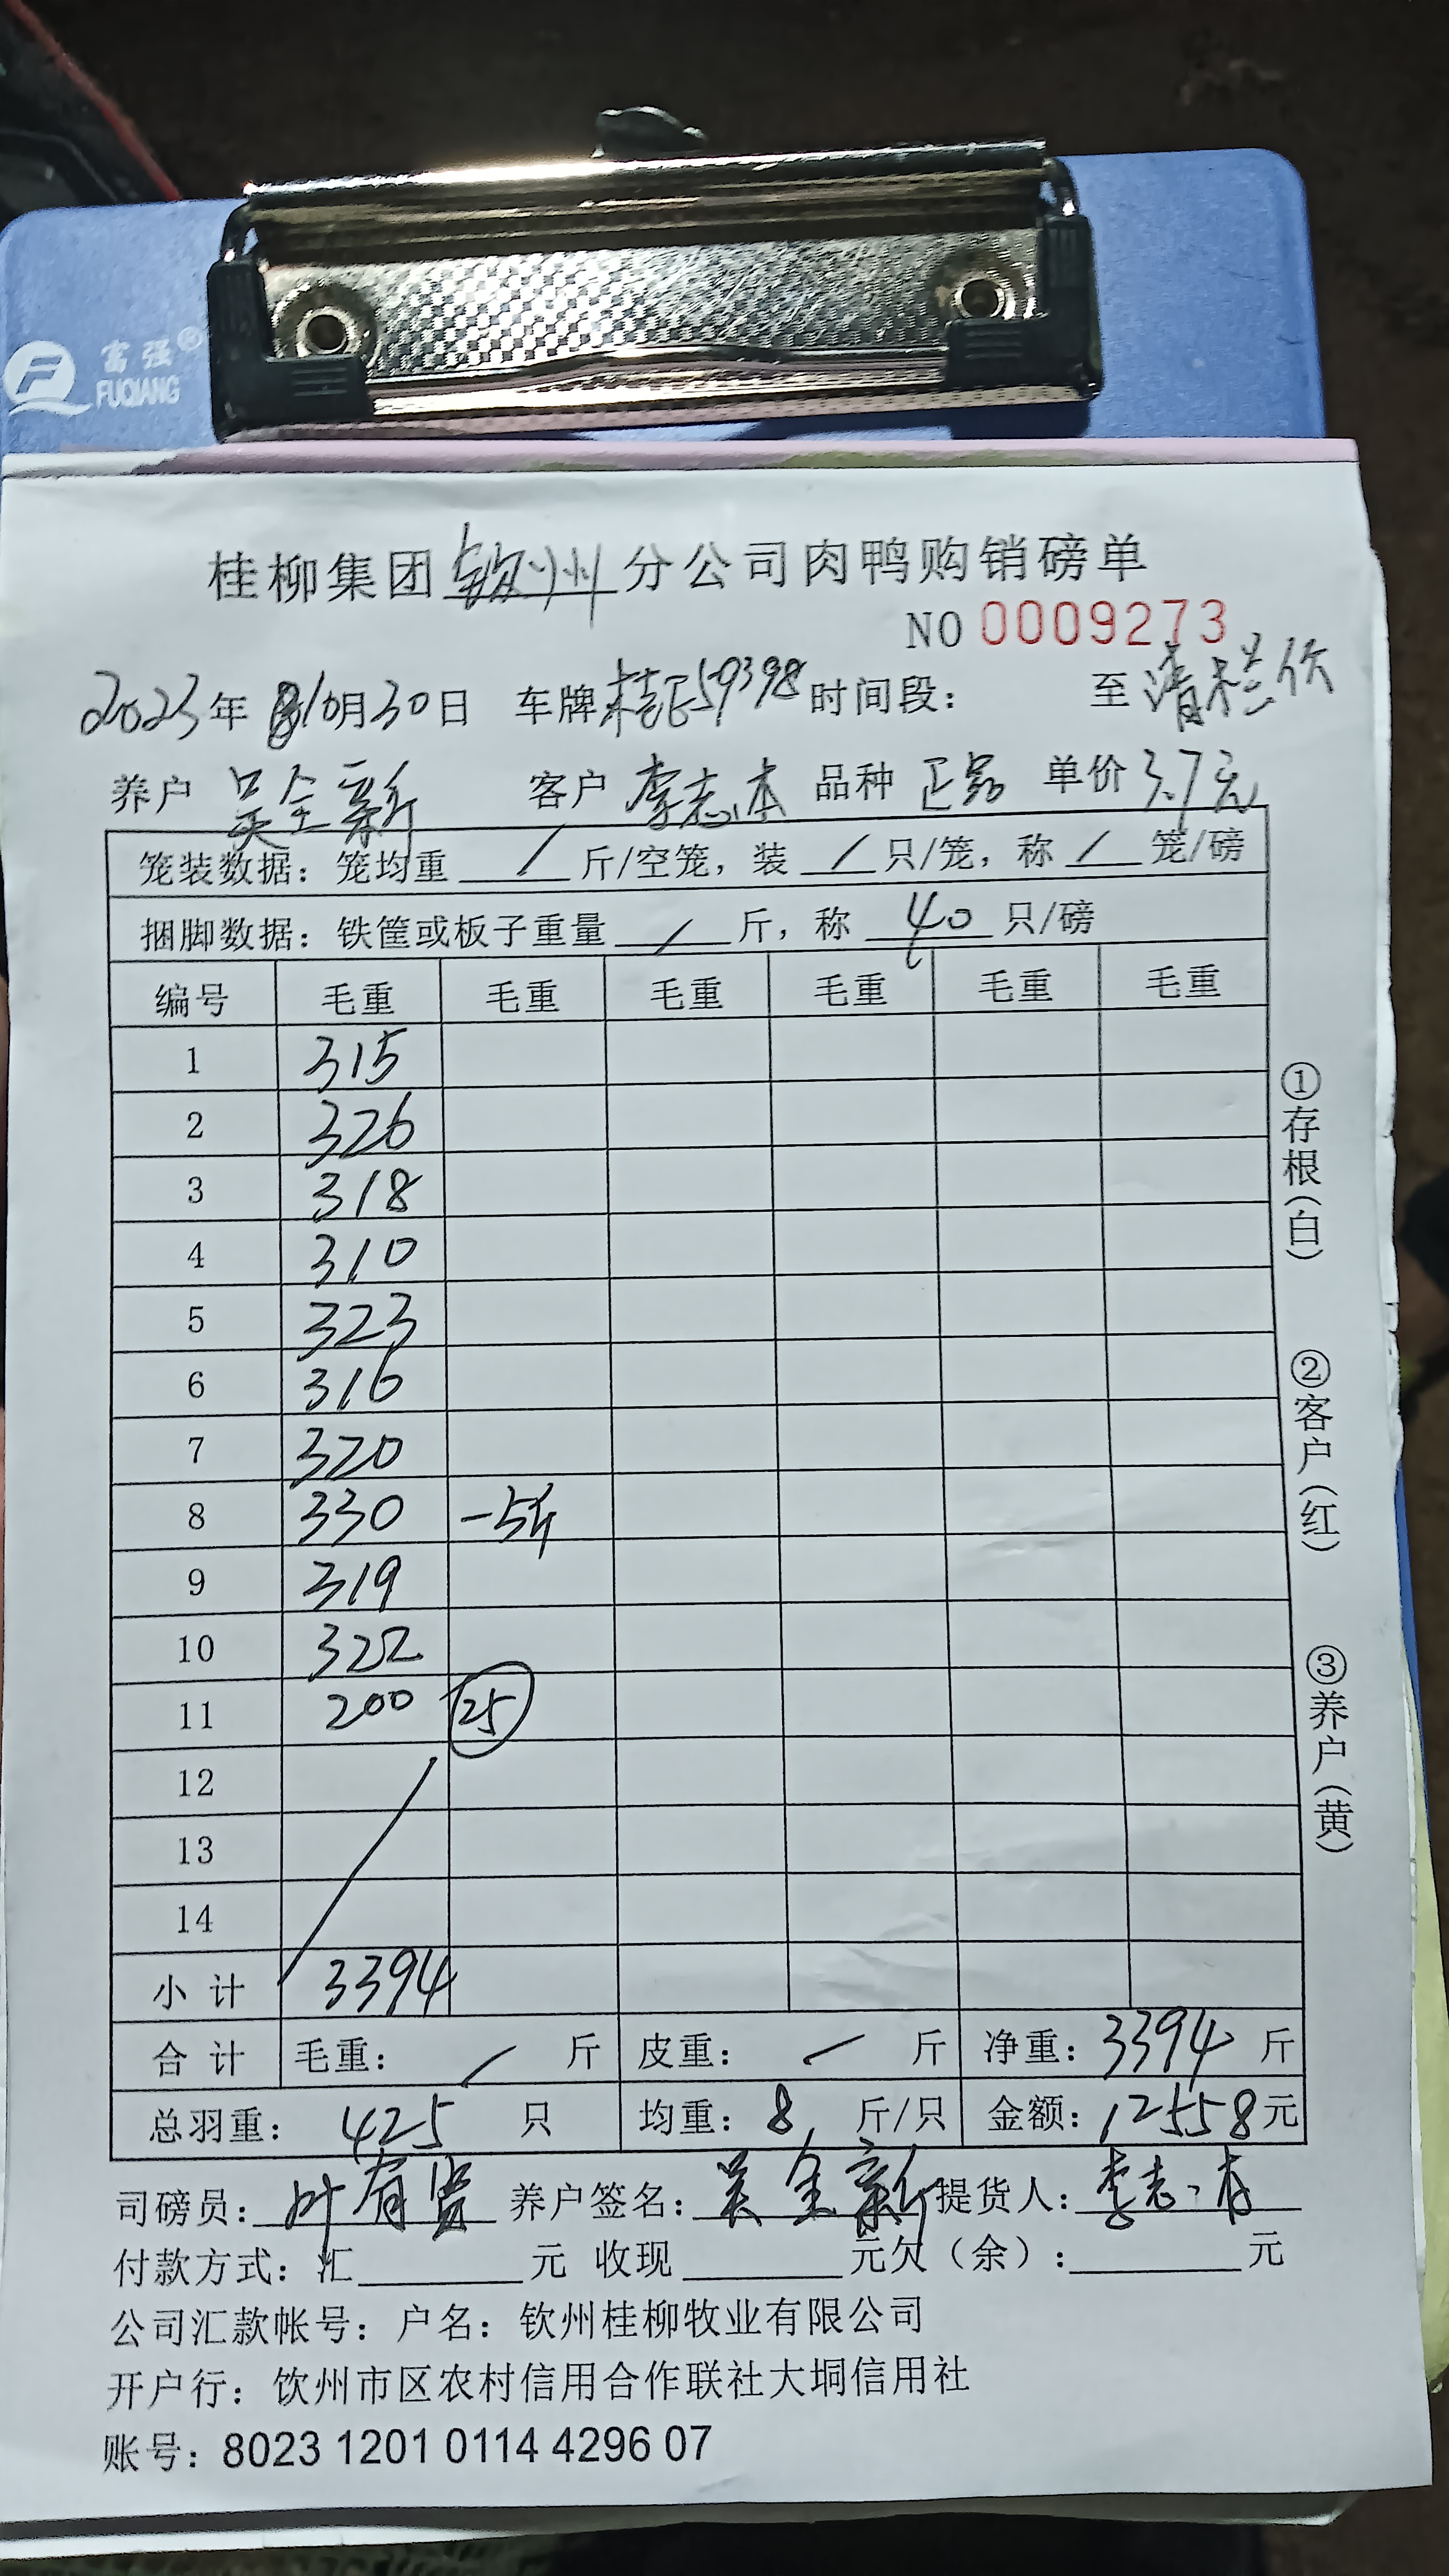 富强®
FUQIANG
桂柳集团钦州分公司肉鸭购销磅单
NO 0009273
2023年10月30日 车牌桂E59398时间段： 至清栏价
养户 吴全新 客户 李志本 品种 正品 单价 3.7元
笼装数据：笼均重 / 斤/空笼，装 / 只/笼，称 / 笼/磅
捆脚数据：铁筐或板子重量 / 斤，称 40 只/磅
编号 毛重 毛重 毛重 毛重 毛重 毛重
1 315
2 326
3 318
4 310
5 323
6 316
7 320
8 330 -5斤
9 319
10 322
11 200 25
12
13
14
小计 3394
合计 毛重： / 斤 皮重： / 斤 净重：3394 斤
总羽重： 425 只 均重：8 斤/只 金额：12558元
司磅员：叶有 养户签名：吴全新 提货人：李志本
付款方式：汇 元 收现 元欠（余）： 元
公司汇款帐号：户名：钦州桂柳牧业有限公司
开户行：饮州市区农村信用合作联社大垌信用社
账号：8023 1201 0114 4296 07
①存根（白）
②客户（红）
③养户（黄）